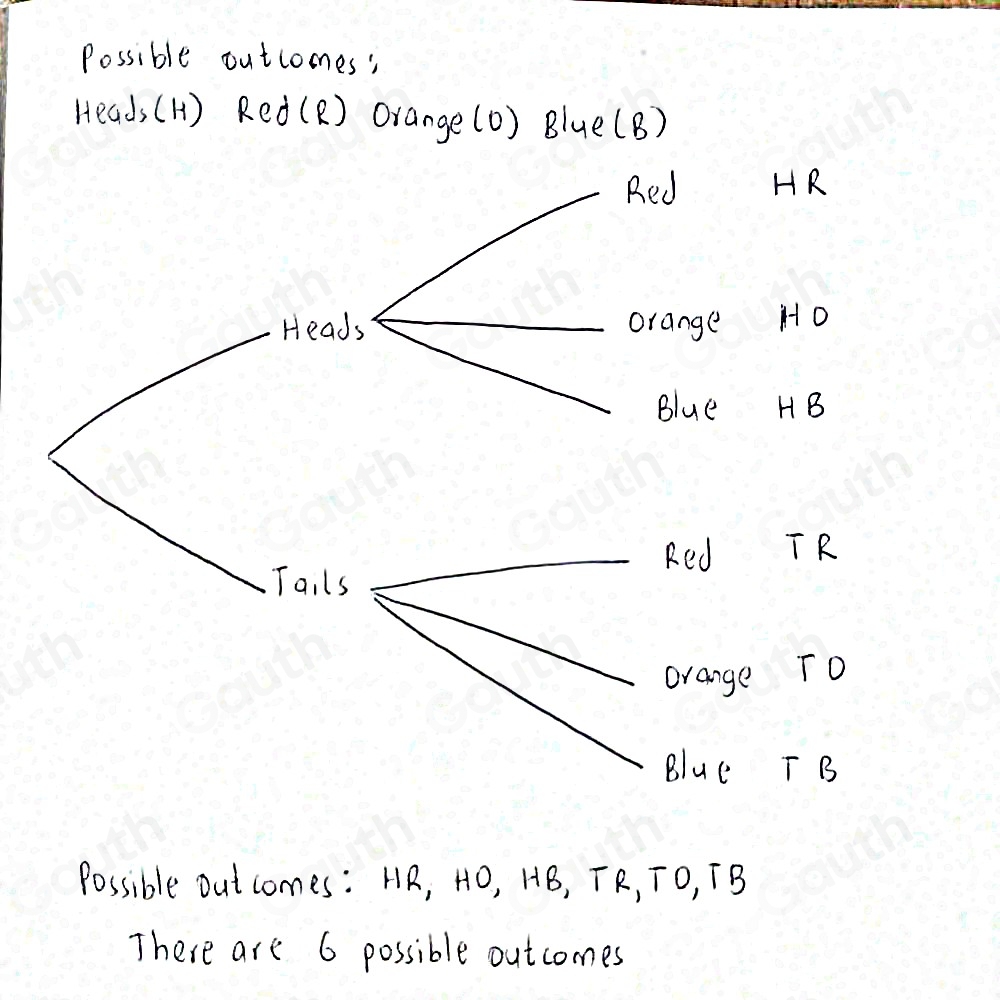 Possible outcomes;
Heads(H) Red(R) Orange(O) Blue(B)
Red HR
Heads Orange HO
Blue HB
Red TR
Tails
Orange TO
Blue TB
Possible Outcomes: HR, HO, HB, TR, TO, TB
There are 6 possible outcomes
Gauth